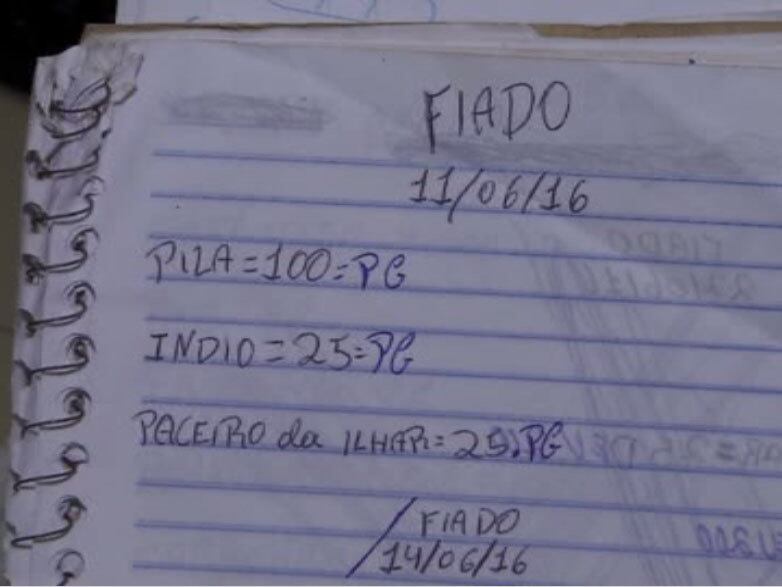 FIADO
11/06/16
PILA=100=PG
INDIO=25=PG
PACEIRO da ILHAR=25=PG
FIADO
14/06/16